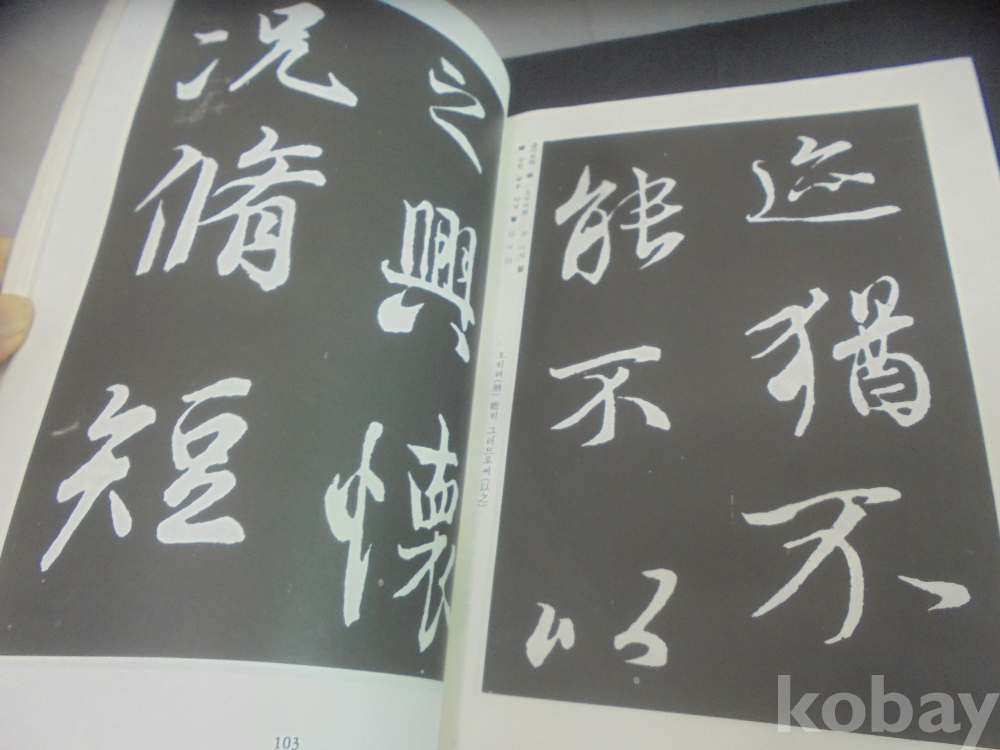 迹猶不
能不以
之興懷
况脩短
103
kobay